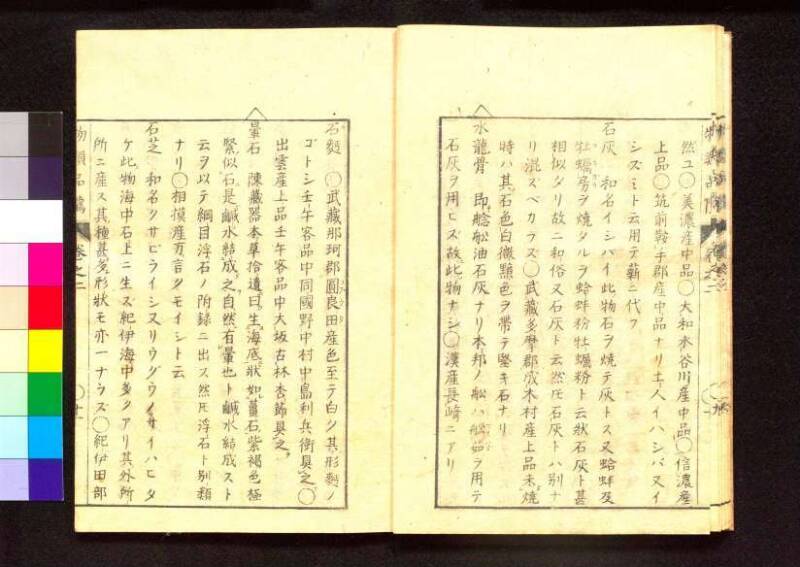 然ユ〇美濃産中品〇大和木谷川産中品〇信濃産
上品〇筑前鞍手郡産中品ナリ土人イハシバ又イ
シズミト云用テ薪ニ代フ
石灰 和名イシハイ此物石ヲ焼テ灰トス又蛤蚌及
牡蠣房ヲ焼タルヲ蛤蚌粉牡蠣粉ト云然石灰ト甚
相似タリ故ニ和俗又石灰ト云然𪜈石灰トハ別ナ
リ混ズベカラズ〇武藏多摩郡成木村産上品未焼
時ハ其石色白微黯色ヲ帯テ堅キ石ナリ
水龍骨 即艌舩油石灰ナリ本邦ノ舩ハ舩茹ヲ用テ
石灰ヲ用ヒズ故此物ナシ〇漢産長崎ニアリ
石麪 〇武藏那珂郡圓良田産色至テ白シ其形麪ノ
ゴトシ壬午客品中同國野中村中島利兵衛具之〇
出雲産上品壬午客品中大坂古林杏節具之
暈石 陳藏器本草拾遺曰生海底狀如薑石紫褐色極
緊似石是鹹水結成之自然有暈也ト鹹水結成スト
云ヲ以テ綱目浮石ノ附録ニ出ス然𪜈浮石ト別類
ナリ〇相摸産方言クモイシト云
石芝 和名クサビライシ又リウグウノサイハヒタ
ケ此物海中石上ニ生ス紀伊海中多クアリ其外所
所ニ産ス其種甚多形狀モ亦一ナラズ〇紀伊田部
物類品隲 卷之二